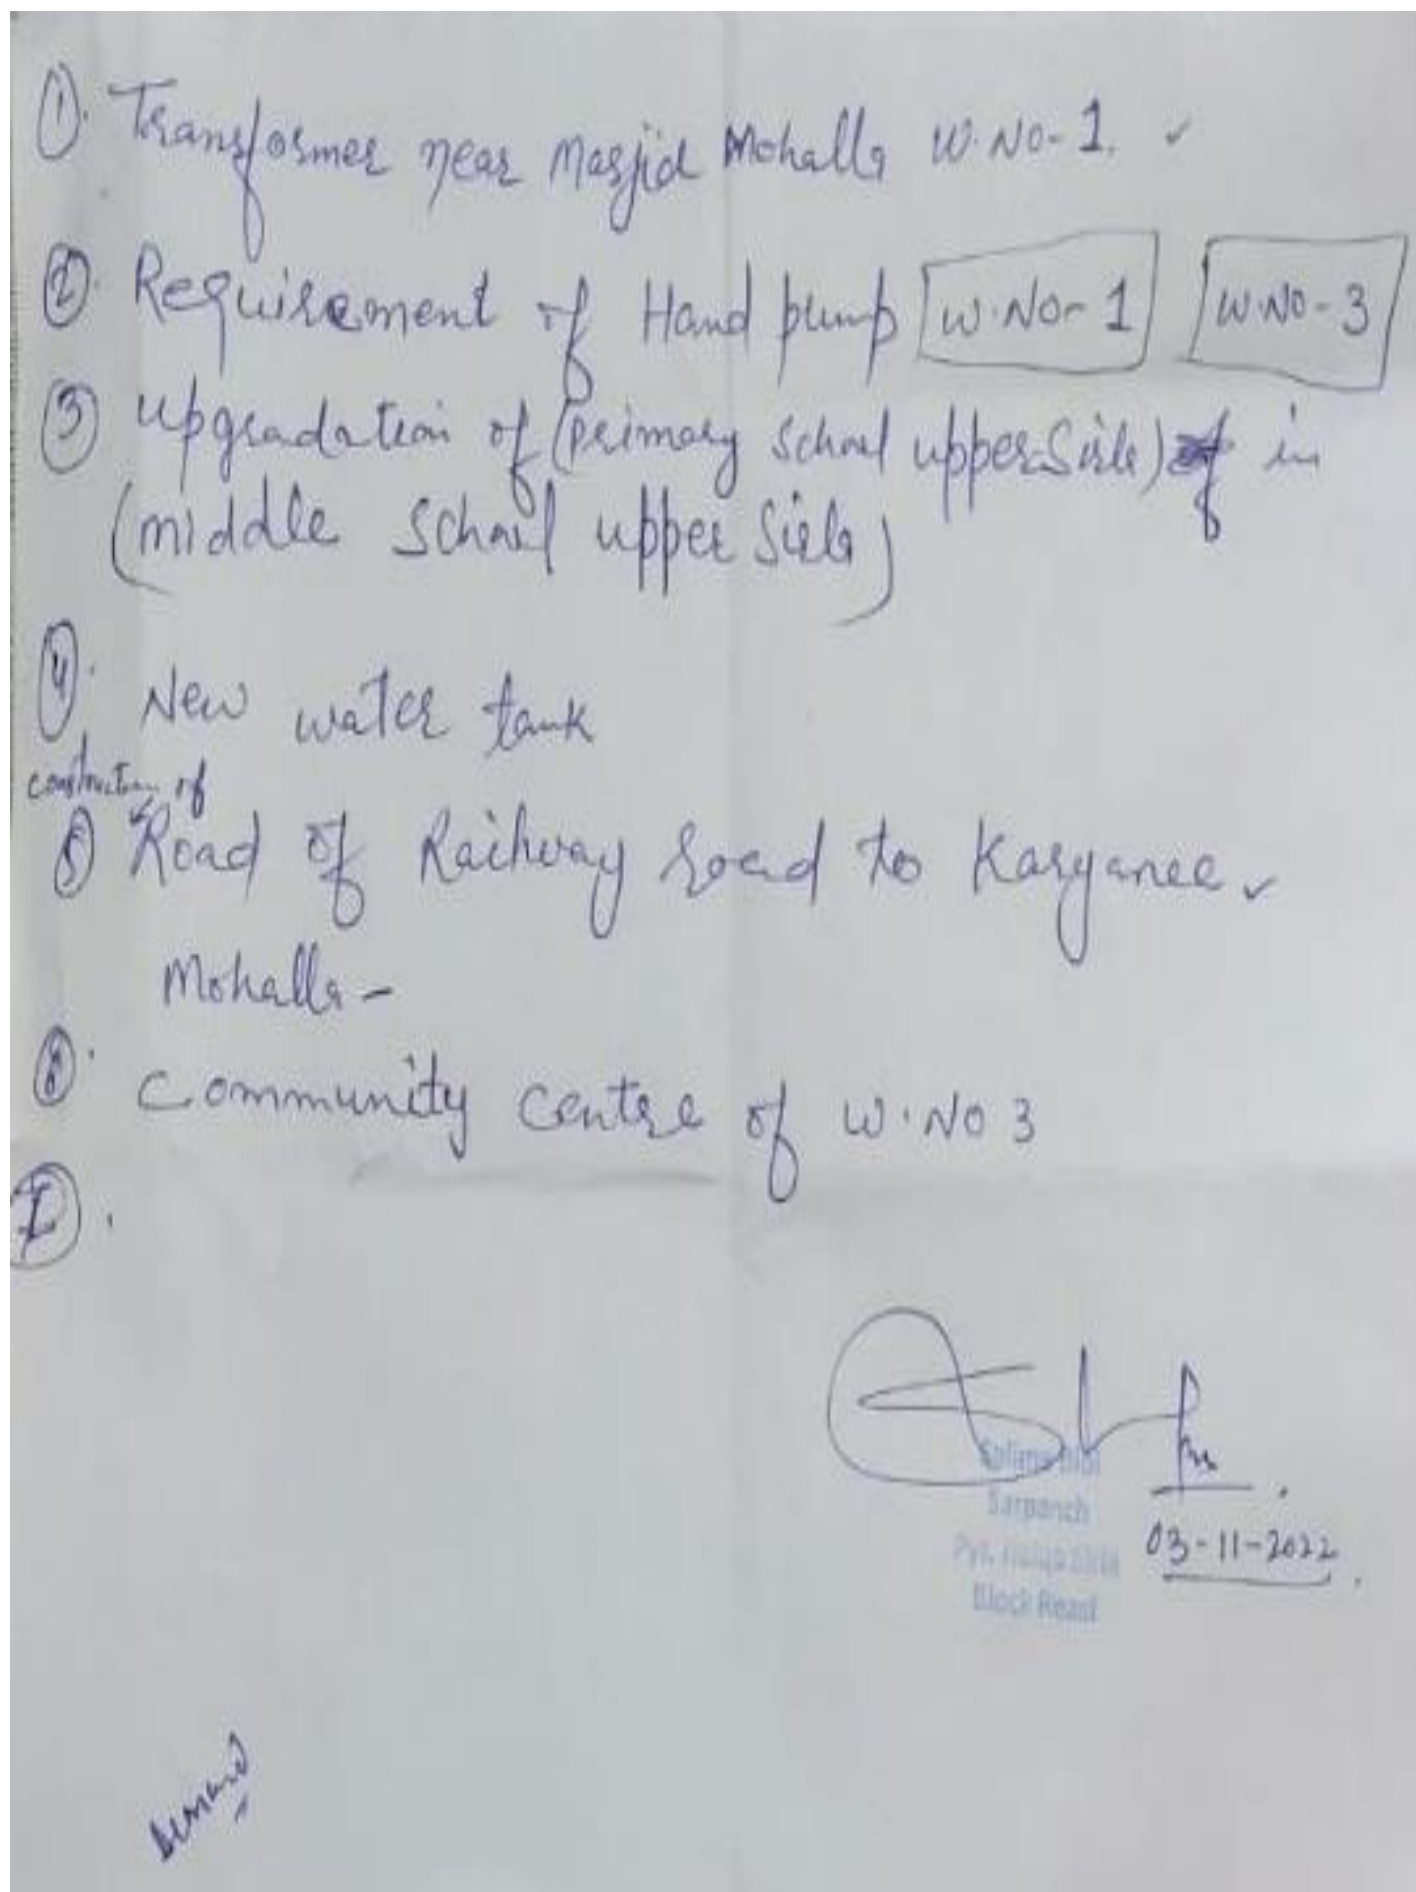 ① Transformer near Masjid Mohalla W.No-1. ✓
② Requirement of Hand pump W.No-1 W.No-3
③ upgradation of (primary school upper Sirla) in
(middle school upper Sirla)
④ New water tank
construction of
⑤ Road of Railway road to Karyanee ✓
Mohalla -
⑥ Community Centre of W.No 3
⑦
Sarpanch
03-11-2022
Block Reasi
Demand